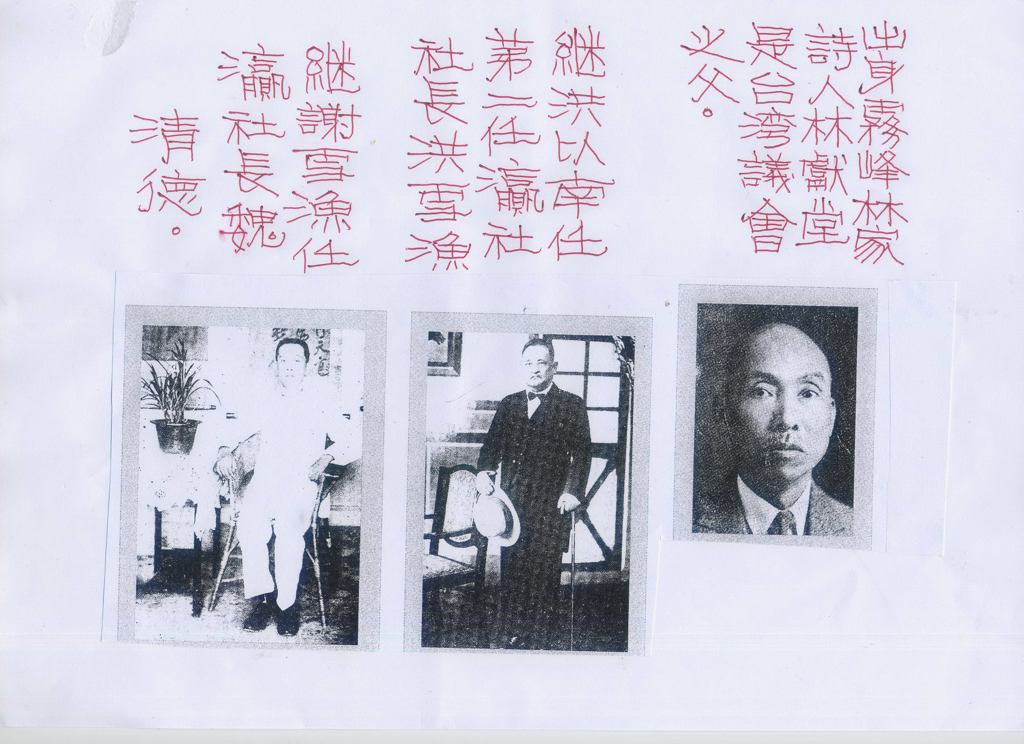 出身霧峰林家
詩人林獻堂
是台湾議會
之父。
継洪以南任
第二任瀛社
社長洪雪漁
継謝雪漁任
瀛社長魏
清德。